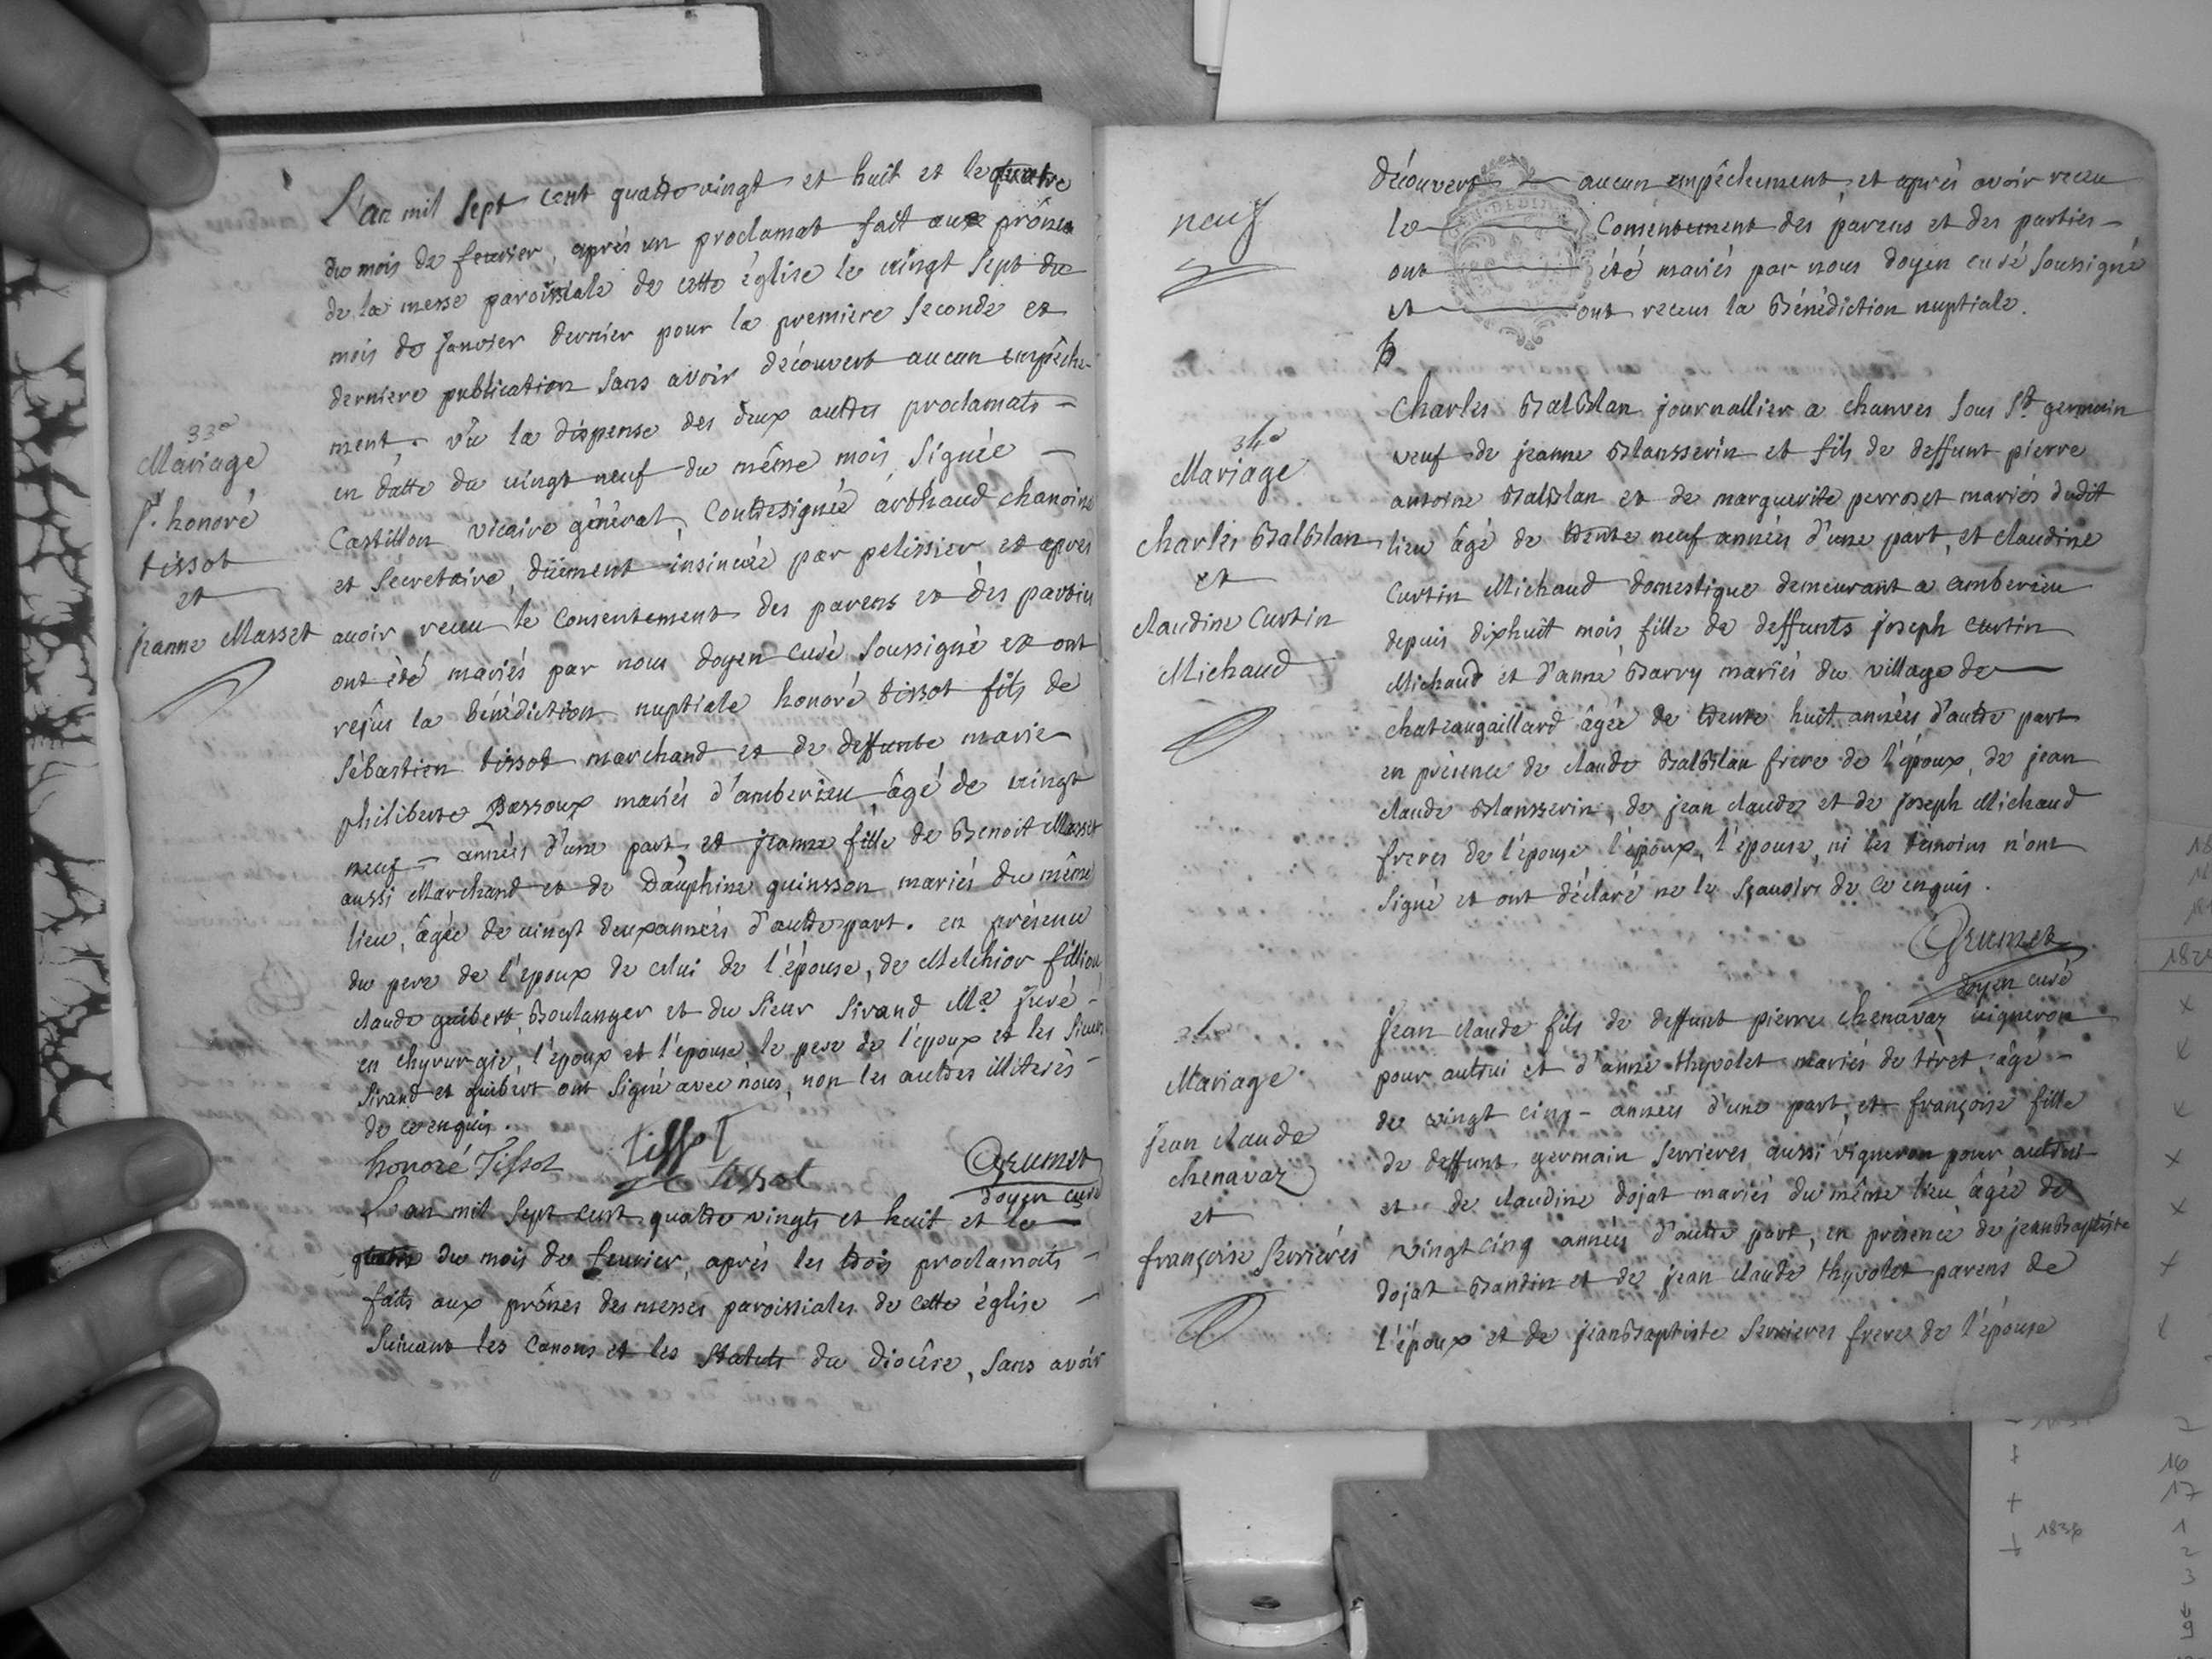 L'an mil sept cent quattre vingt et huit et le quatre
du mois de fevrier, après un proclamat fait aux prônes
de la messe paroissiale de cette église le vingt sept du
mois de janvier dernier pour la premiere seconde et
derniere publication sans avoir découvert aucun empêche-
ment, vû la dispense des deux auttes proclamats -
en datte du vingt neuf du même mois signée -
Castillon vicaire général, Conttesignée arthaud chanoine
et Secretaire, düement insinuée par pelissier et apres
avoir receu le Consentement des parens et des parties
ont été mariés par nous doyen curé soussigné et ont
reçus la bénédiction nuptiale honoré tissot fils de
Sébastien tissot marchand et de deffunte marie
philiberte Bassoux mariés d'amberieu âgé de vingt
neuf - années d'une part et jeanne fille de Benoit Masset
aussi Marchand et de Dauphine guinsson mariés du même
lieu, âgée de vingt deux années d'autte part. en présence
du pere de l'epoux de celui de l'épouse, de Melchior fillion
claude guibert, Boulanger et du sieur Sirand Me juré -
en chyrurgie, l'époux et l'epouse le pere de l'epoux et les sieurs
Sirand et guibert ont signé avec nous, non les auttes illiterés -
de ce enquis.
honoré Tissot
Tissot
tissot
Grumet
doyen curé
33e
Mariage
Sr. honoré
tissot
et
jeanne Masset
L'an mil sept cent quatte vingts et huit et le
quatre du mois de fevrier, après les ttois proclamats -
faits aux prônes des messes paroissiales de cette église -
suivant les Canons et les statuts du diocèse, sans avoir
neuf
découvert aucun empêchement et après avoir receu
le Consentement des parens et des parties -
ont été mariés par nous doyen curé soussigné
et ont receus la Bénédiction nuptiale.
34e
Mariage
Charles BalBlan
et
claudine Curtin
Michaud
Charles BalBlan journallier a chanves sous St. germain
veuf de jeanne Blansserin et fils de deffunt pierre
antoine BalBlan et de marguerite perroset mariés dudit
lieu âgé de ttente neuf années d'une part, et claudine
Curtin Michaud domestique demeurant a amberieu
depuis dixhuit mois fille de deffunts joseph curtin
Michaud et d'anne Barry mariés du village de
chateaugaillard âgée de ttente huit années d'autte part
en présence de claude BalBlan frere de l'époux, de jean
claude Blansserin, de jean claude et de joseph Michaud
freres de l'épouse l'époux, l'épouse, ni les témoins n'ont
signé et ont déclaré ne le sçavoir de ce enquis.
Grumet
doyen curé
Mariage
jean claude
chenavaz
et
françoise Serrieres
jean claude fils de deffunt pierre chenavaz vigneron
pour auttui et d'anne thyvolet mariés de tiret âgé -
de vingt cinq - années d'une part, et françoise fille
de deffunt germain Serrieres aussi vigneron pour auttui
et de claudine dojat mariés du même lieu âgée de
vingt cinq années d'autte part, en présence de jean Baptiste
dojat Bandin et de jean claude thyvolet parens de
l'époux et de jean Baptiste Serrieres frere de l'épouse
16
17
1
1836
2
3